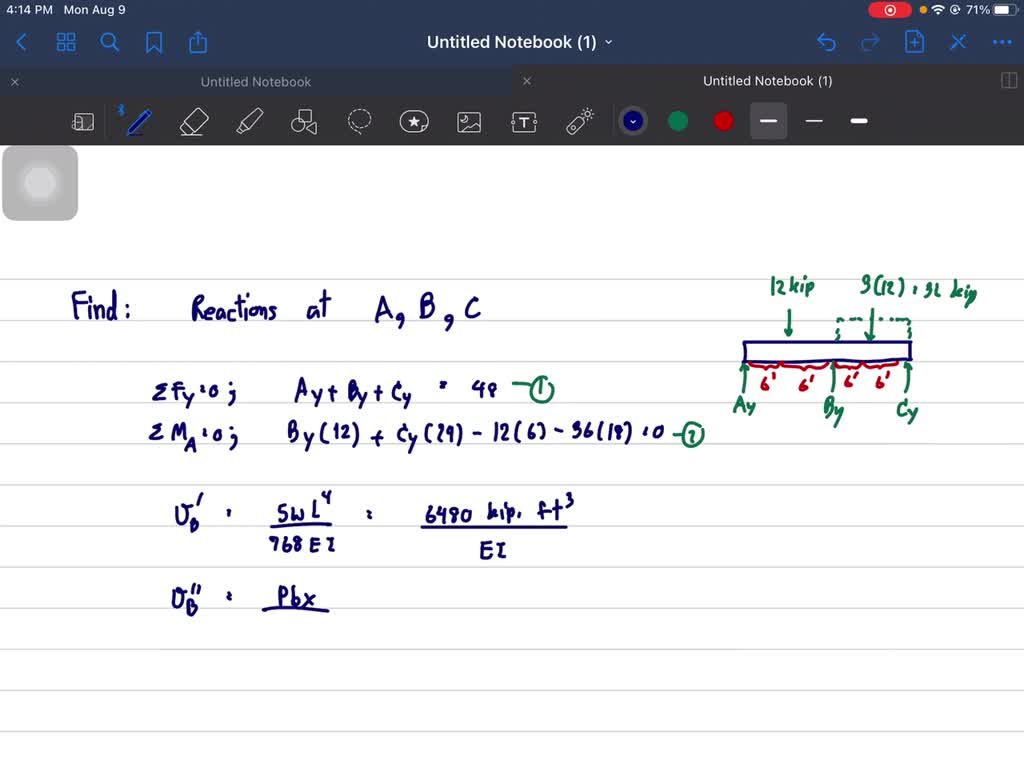 4:14 PM Mon Aug 9
71%
Untitled Notebook (1)
Untitled Notebook
Untitled Notebook (1)
Find: Reactions at A, B, C
12 kip
3(12) = 36 kip
6' 6' 6' 6'
Ay By Cy
ΣFy=0; Ay + By + Cy = 48 - ①
ΣM_A=0; By(12) + Cy(24) - 12(6) - 36(18) = 0 - ②
υ_B' = 5wL⁴ / 768EI = 6480 kip. ft³ / EI
υ_B'' = Pbx